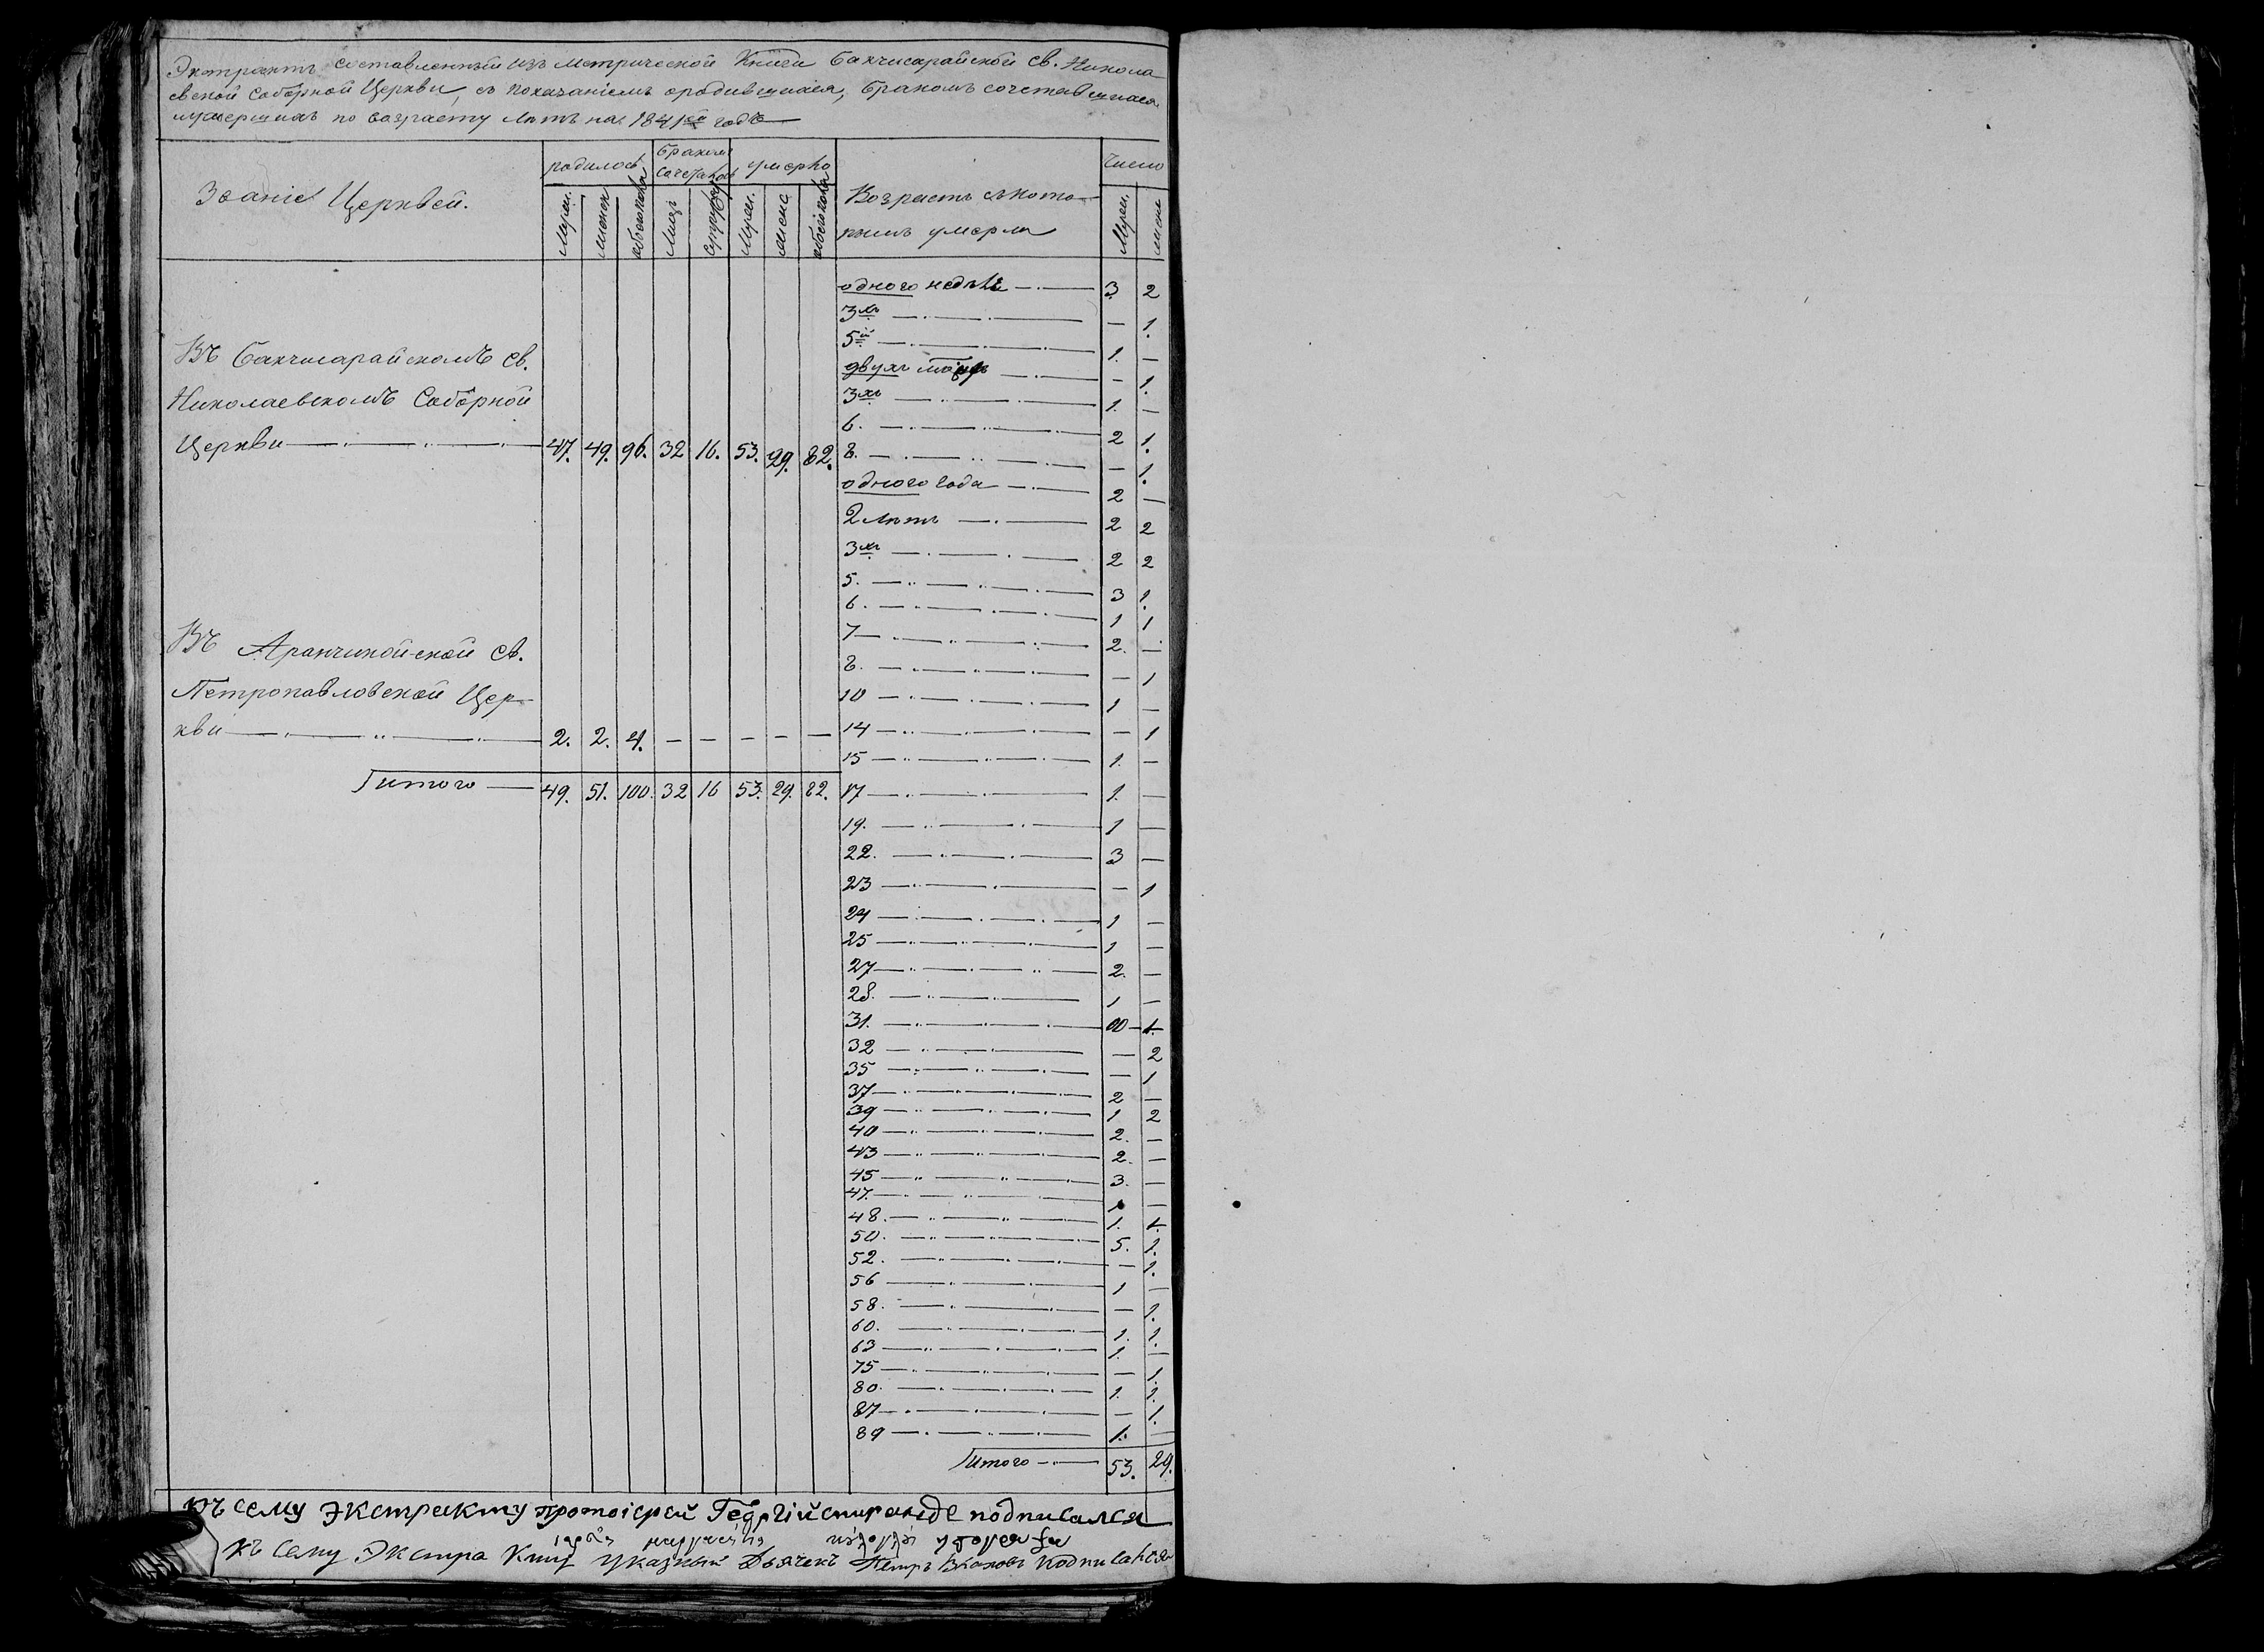 Экстрактъ составленный изъ Метрической Книги Бахчисарайской Св. Никола-
евской Соборной Церкви, съ показаніемъ ородившихся, бракомъ сочетавшихся
иумершихъ по возрасту лѣтъ на 1841й годъ
Званіе Церквей.
родилось
бракомъ сочеталось
умерло
Возрастъ ското-
рымъ умерли
Число
Муж.
женск
обоегопола
Лицъ
супружествъ
Муж.
женс
обоегопола
Муж.
женс
одного недѣли 3. 2
3хъ — 1.
5й 1. —
двухъ мѣсяцъ — 1.
3хъ 1. —
6. 2 1.
Въ Бахчисарайскомъ Св.
Николаевскомъ Соборной
Церкви 47. 49. 96. 32 16. 53. 29. 82.
8. — 1.
одного года 2 —
2 лѣтъ 2 2
3хъ 2 2
5. 3 1.
6. 1 1
7 2. —
8. — 1
10 1 —
Въ Аранчикойской Св.
Петропавловской Цер-
кви 2. 2. 4. — — — — —
14 — 1
15 1. —
Итого 49. 51. 100. 32 16 53. 29. 82.
17 1. —
19. 1 —
22. 3 —
23 — 1
24 1 —
25 1 —
27 2. —
28. 1 —
31. — 1.
32 — 2
35 — 1
37 2 —
39 1 2
40 2. —
43 2. —
45 3. —
47. 1 —
48. 1. 1.
50. 5. 1.
52. — 1.
56 1 —
58. — 1.
60. 1. 1.
63 1. —
75 — 1.
80. 1. 1.
87 — 1.
89 1. —
Итого 53. 29.
къ сему экстракту протоіерей Георгій спиранде подписался
къ сему Экстра Кту указный Дьячекъ Петръ подписался